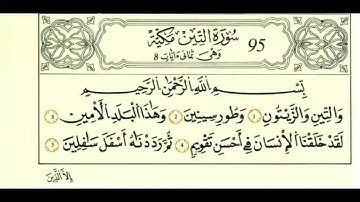 سُورَةُ التِّينِ مَكِّيَّة 95
وَهِيَ ثَمَانِي ءَايَاتٍ 8
بِسْمِ اللَّهِ الرَّحْمَٰنِ الرَّحِيمِ
وَالتِّينِ وَالزَّيْتُونِ ١ وَطُورِ سِينِينَ ٢ وَهَٰذَا الْبَلَدِ الْأَمِينِ ٣
لَقَدْ خَلَقْنَا الْإِنسَانَ فِي أَحْسَنِ تَقْوِيمٍ ٤ ثُمَّ رَدَدْنَاهُ أَسْفَلَ سَافِلِينَ ٥
إِلَّا الَّذِينَ